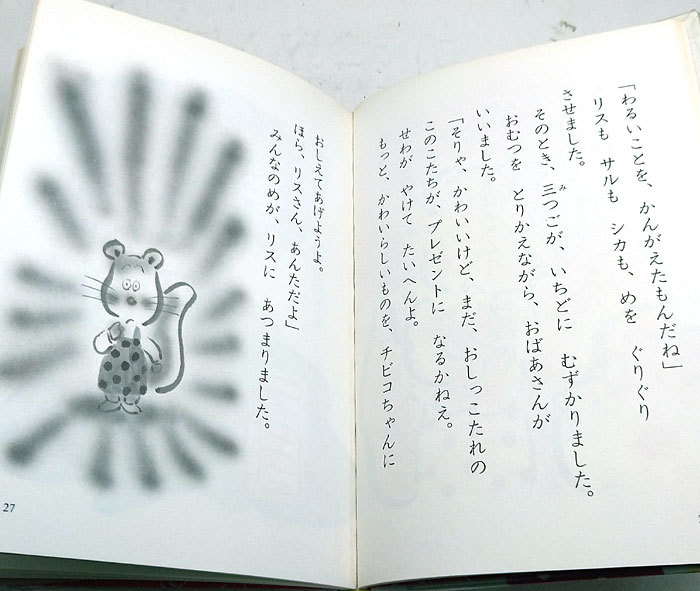 「わるいことを、かんがえたもんだね」
リスも サルも シカも、めを ぐりぐり
させました。
そのとき、三つごが、いちどに むずかりました。
おむつを とりかえながら、おばあさんが
いいました。
「そりゃ、かわいいけど、まだ、おしっこたれの
このこたちが、プレゼントに なるかねえ。
せわが やけて たいへんよ。
もっと、かわいらしいものを、チビコちゃんに
おしえてあげようよ。
ほら、リスさん、あんただよ」
みんなのめが、リスに あつまりました。
27